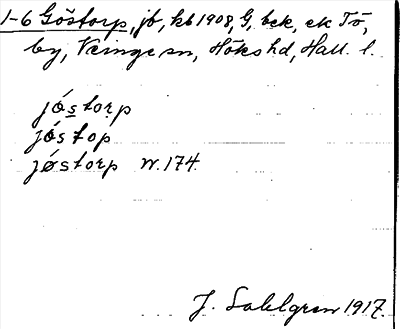 1-6 Göstorp, jb, kb 1908, G, bek, ek Tö,
by, Veinge sn, Höks hd, Hall. l.
jóstorp
jóstop
jøstorp W. 174.
J. Sahlgren 1917.